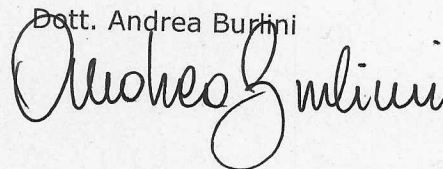 Dott. Andrea Burlini
Andrea Burlini